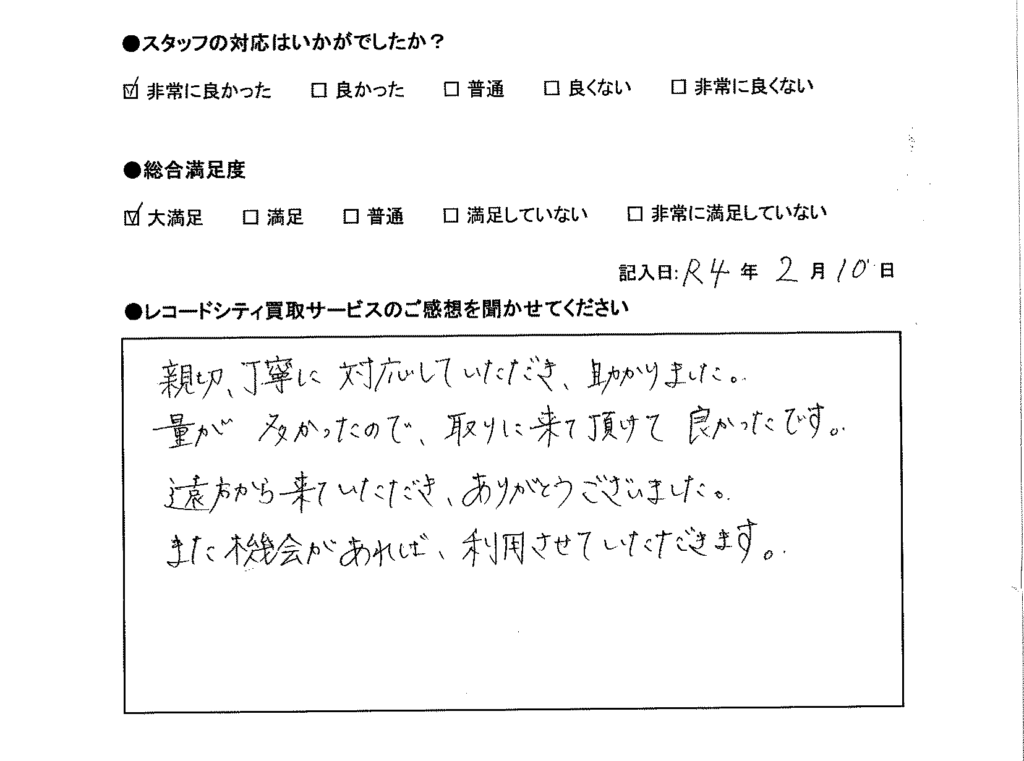 ●スタッフの対応はいかがでしたか？
☑ 非常に良かった □ 良かった □ 普通 □ 良くない □ 非常に良くない
●総合満足度
☑ 大満足 □ 満足 □ 普通 □ 満足していない □ 非常に満足していない
記入日:R4 年 2 月 10 日
●レコードシティ買取サービスのご感想を聞かせてください
親切、丁寧に対応していただき、助かりました。
量が多かったので、取りに来て頂けて良かったです。
遠方から来ていただき、ありがとうございました。
また機会があれば、利用させていただきます。